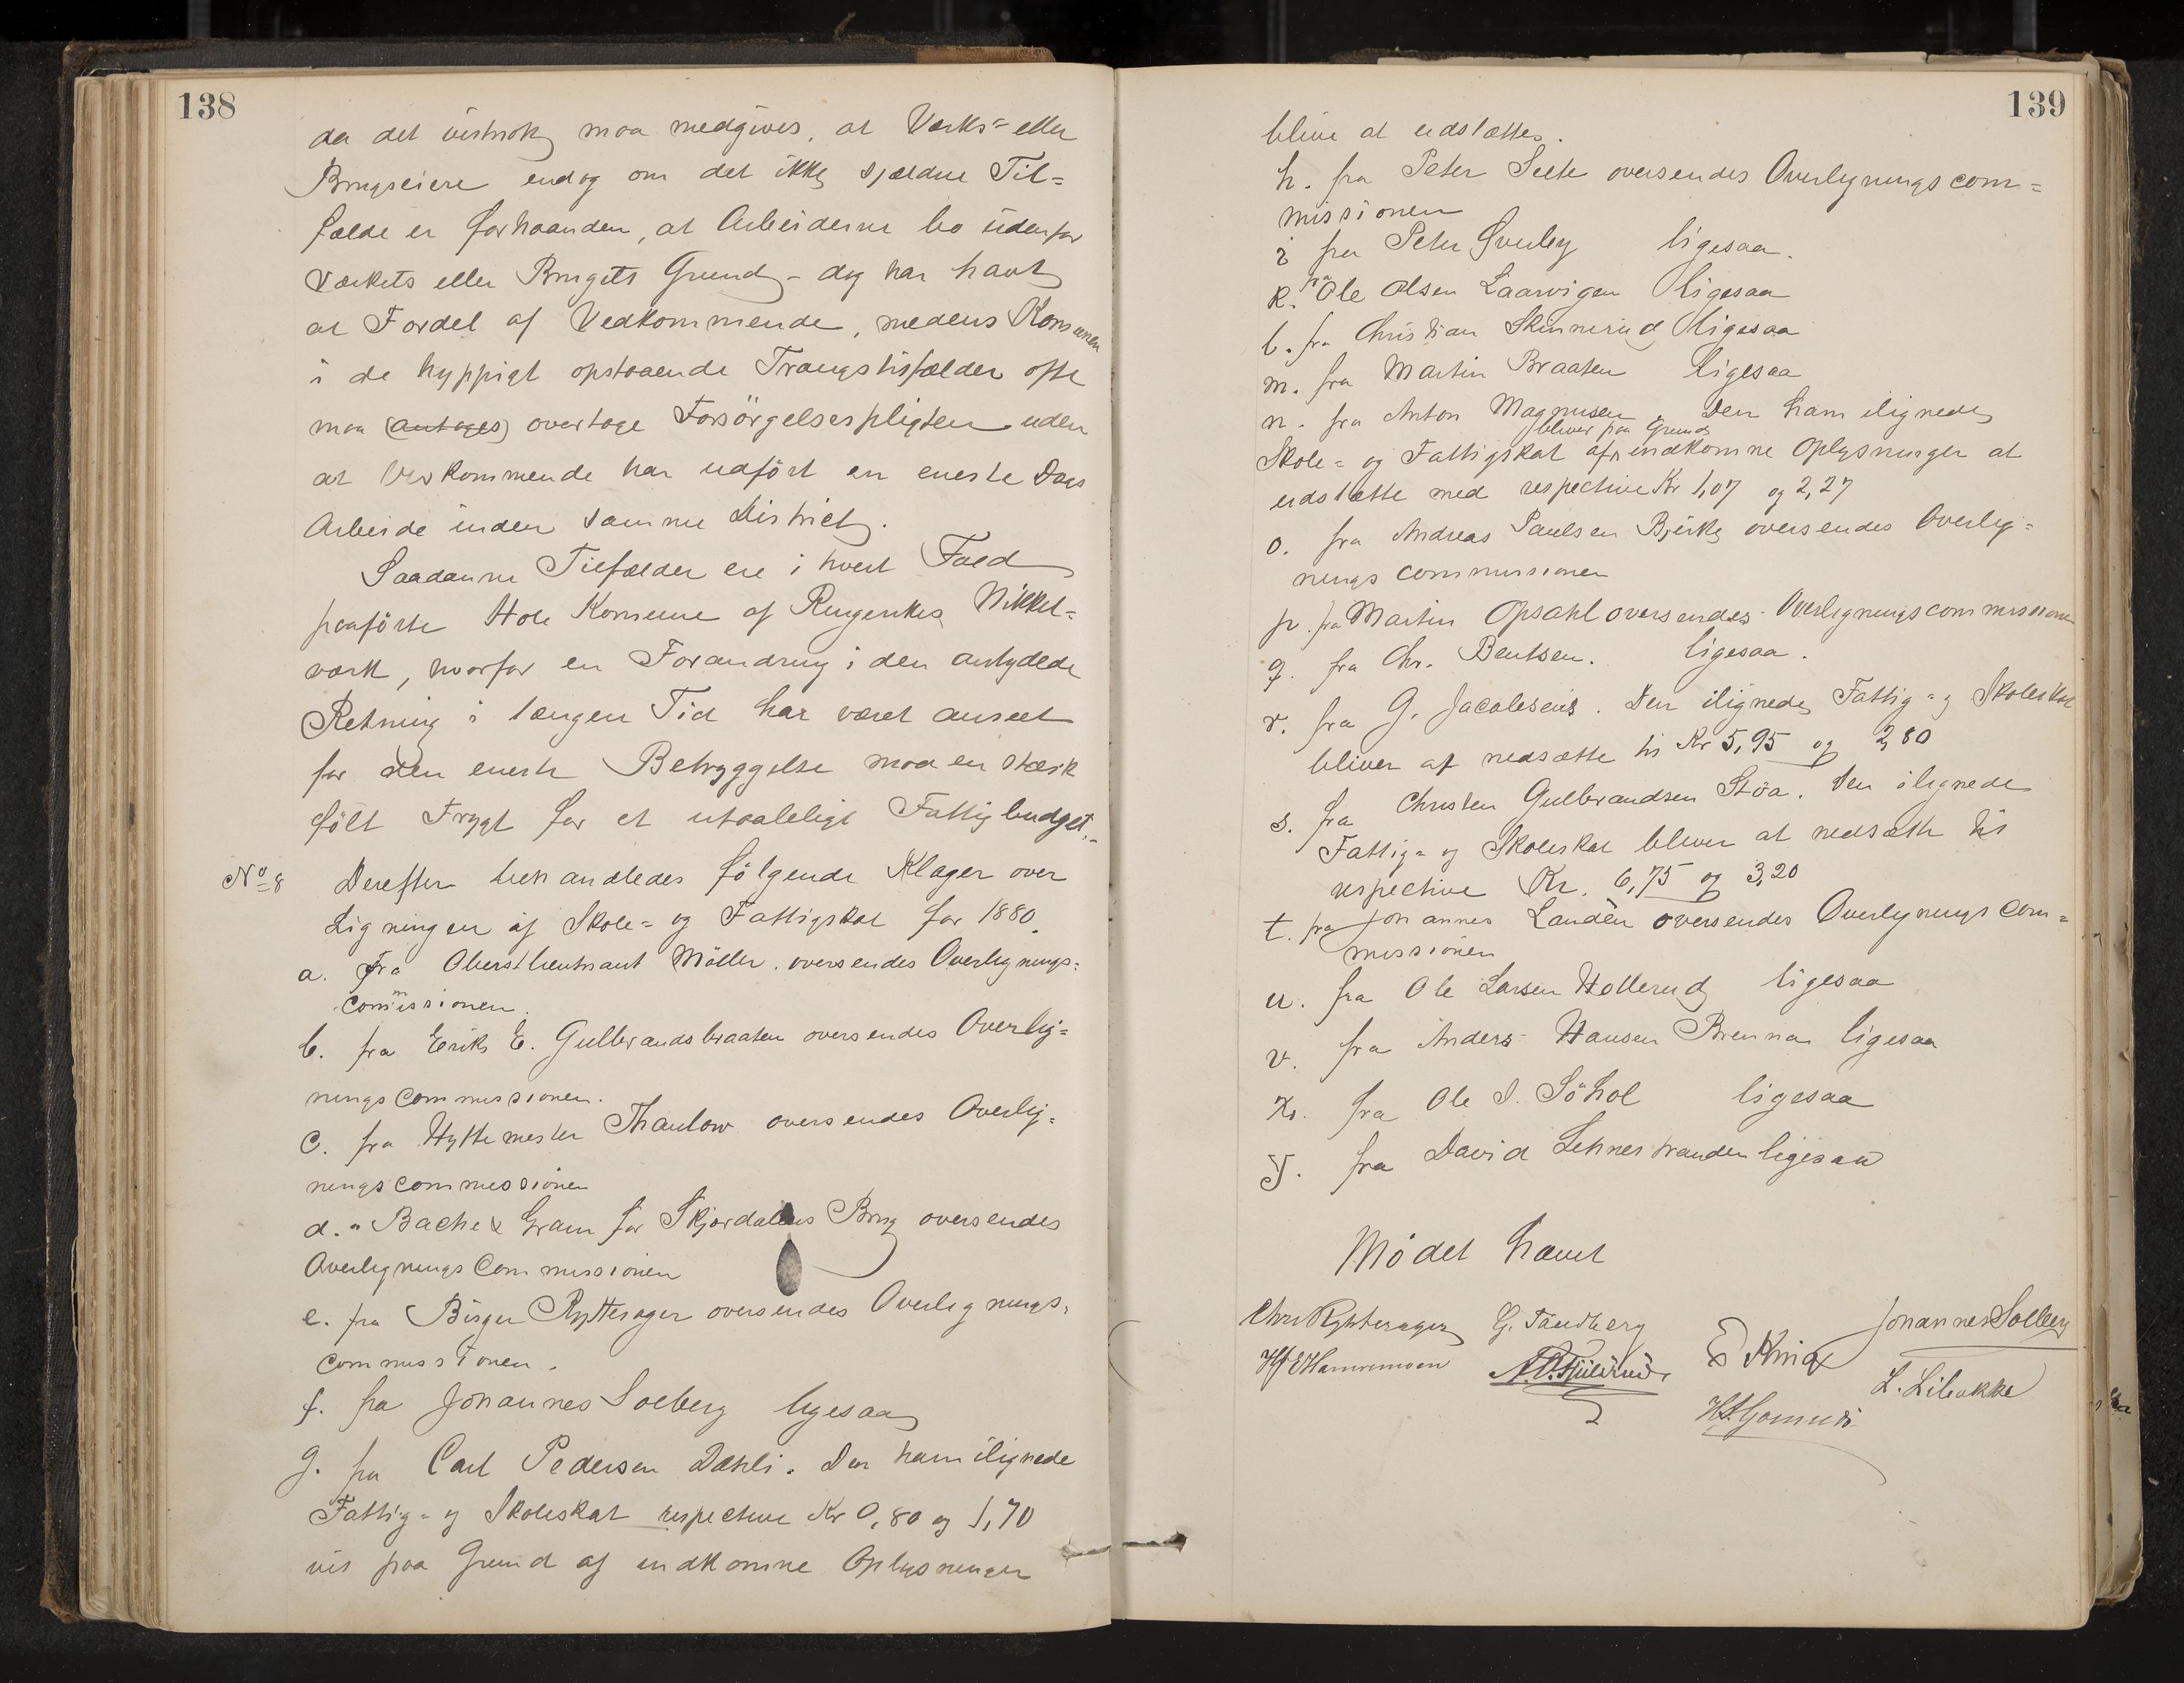 138
da det vistnok maa medgives, at Værks= eller
Brugseiere endog om det ikke sjeldne Til=
fælde er forhaanden, at Arbeiderne bo udenfor
Værkets eller Brugets Grund - dog har havt
at Fordel af Vedkommende, medens Komunen
i de hyppigt opstaaende Trangstilfælder ofte
maa (antages) overtage Forsörgelsespligten uden
at Vedkommende har udfört en eneste Dags
Arbeide inden samme District.
Saadanne Tilfælder ere i hvert Fald
paaförte Hole Komune af Ringerikes Nikkel=
værk, hvorfor en Forandring i den antydede
Retning i længere Tid har været anseet
for den eneste Betryggelse mod en stærk
fölt Frygt for et utaaleligt Fattigbudget.-
No 8 Derefter behandledes fölgende Klager over
Ligningen af Skole= og Fattigskat for 1880.
a. Fra Oberstlieutnant Möller oversendes Overlignings=
commissionen.
b. fra Erik E. Gulbrandsbraaten oversendes Overlig=
ningscommissionen.
c. fra Hyttemester Thaulow oversendes Overlig=
ningscommissionen
d. " Bache & Gram for Skjærdalens Brug oversendes
Overligningscommissionen
e. fra Birger Rytterager oversendes Overlignings=
commissionen.
f. fra Johannes Solberg ligesaa
g. fra Carl Pedersen Dæhli. Den ham ilignede
Fattig= og Skoleskat respective Kr 0,80 og 1,70
vil paa Grund af indkomne Oplysninger
139
blive at udslættes.
h. fra Peter Sæte oversendes Overligningscom=
missionen
i fra Peter Gverby ligesaa.
k. fra Ole Olsen Laarvigen ligesaa
l. fra Christian Skinnerud ligesaa
m. fra Martin Braaten ligesaa
n. fra Anton Magnusen. Den ham ilignede
bliver paa Grund
Skole= og Fattigskat af indkomne Oplysninger at
udslætte med respective Kr 1,07 og 2,27
o. fra Andreas Paulsen Bjerke oversendes Overlig=
ningscommissionen
p. fra Martin Opsahl oversendes Overligningscommissionen
q. fra Chr. Bentsen. ligesaa.
r. fra G. Jacobsens. Den ilignede Fattig= og Skoleskat
bliver at nedsætte til Kr 5,95 og 2,80
s. fra Christen Gulbrandsen Stöa. Den ilignede
Fattig= og Skoleskat bliver at nedsætte til
respective Kr. 6,75 og 3,20
t. fra Johannes Landèn oversendes Overligningscom=
missionen
u. fra Ole Larsen Hollerud ligesaa
v. fra Anders Hansen Brenna ligesaa
x. fra Ole I. Söhol ligesaa
y. fra David Lehnestranden ligesaa
Mödet hævet
Chr Rytterager G. Tandberg Johannes Solberg
HJEHammernoen
L. Libakke